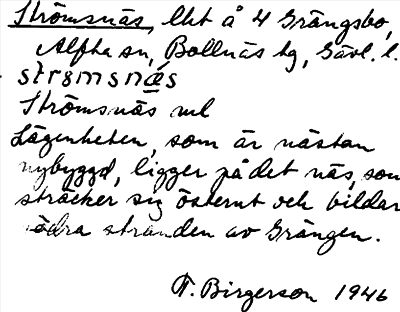 Strömsnäs, lht å 4 Grängsbo,
Alfta sn, Bollnäs tg, Gävl. l.
strømsnæ̀s
Strömsnäs ml
Lägenheten, som är nästan
nybyggd, ligger på det näs, som
sträcker sig österut och bildar
södra stranden av Grängen.
F. Birgerson 1946